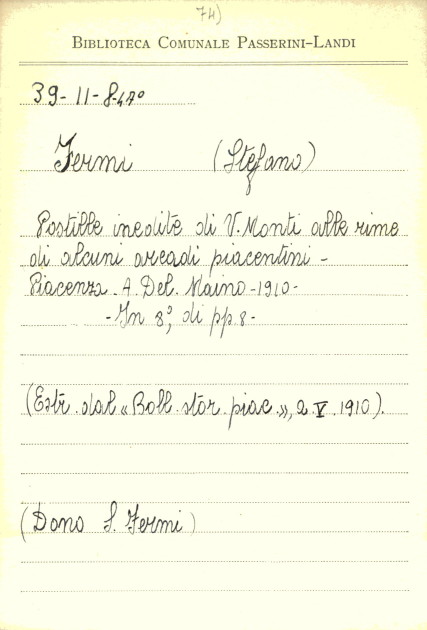 74)
BIBLIOTECA COMUNALE PASSERINI-LANDI
39-11-8-47º
Fermi (Stefano)
Postille inedite di V. Monti alle rime
di alcuni arcadi piacentini -
Piacenza. A. Del. Maino - 1910 -
- In 8º, di pp. 8 -
(Estr. dal « Boll. stor. piac. », 2. V. 1910).
(Dono S. Fermi)